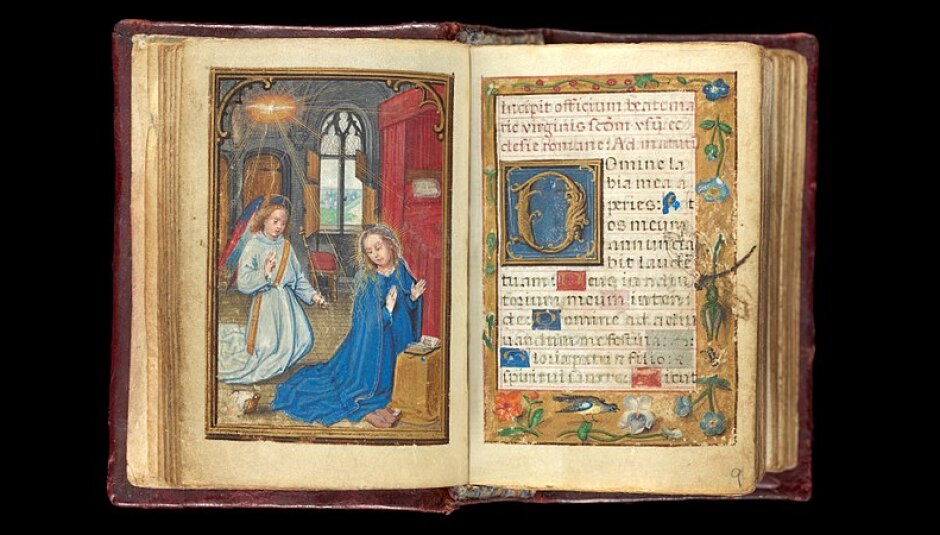 Incipit officium beate ma
rie virginis scdm usū ec
clesie romane: Ad matuti
Domine la
bia mea a
peries: Et
os meum
annuncia
bit laudē
tuam: Deus in adiu
torium meum inten
de: Domine ad adiu
uandum me festina:
Gloria patri et filio et
spiritui sancto: Sicut
9